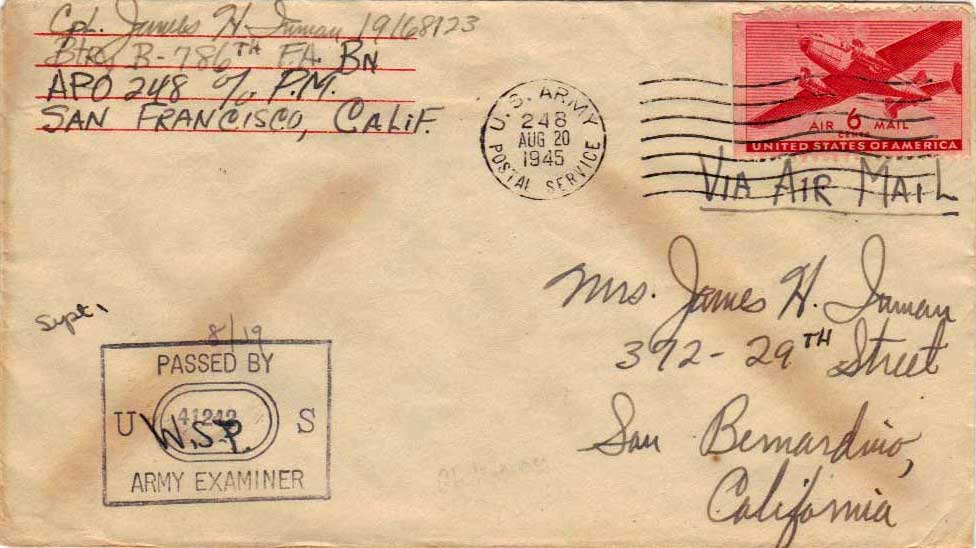 Cpl. James H. Inman 19168123
Btry B-786TH F.A. BN
APO 248 c/o P.M.
SAN FRANCISCO, CALIF.
U.S. ARMY
248
AUG 20
1945
POSTAL SERVICE
AIR 6 MAIL
CENTS
UNITED STATES OF AMERICA
VIA AIR MAIL
Mrs. James H. Inman
392-29TH Street
San Bernardino,
California
Sept 1
8/19
PASSED BY
U 41242 S
W.S.P.
ARMY EXAMINER